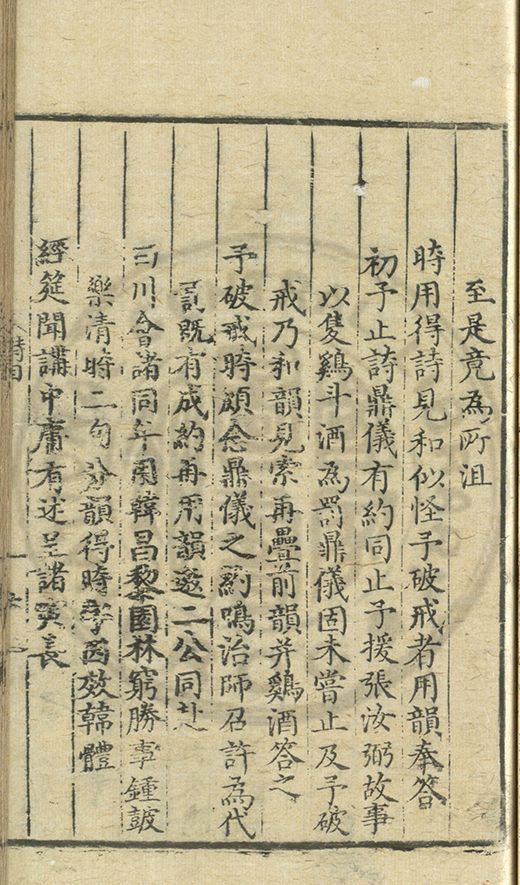 至是竟為所沮
時用得詩見和似怪予破戒者用韻奉答
初予止詩鼎儀有約同止予援張汝弼故事
以隻鷄斗酒為罰鼎儀固未嘗止及予破
戒乃和韻見索再疊前韻并鷄酒答之
予破戒時頗念鼎儀之約鳴治師召許為代
罰既有成約再用韻邀二公同赴
曰川會諸同年用韓昌黎園林窮勝事鍾皷
樂清時二句分韻得時字因效韓體
經筵聞講中庸有述呈諸寅長